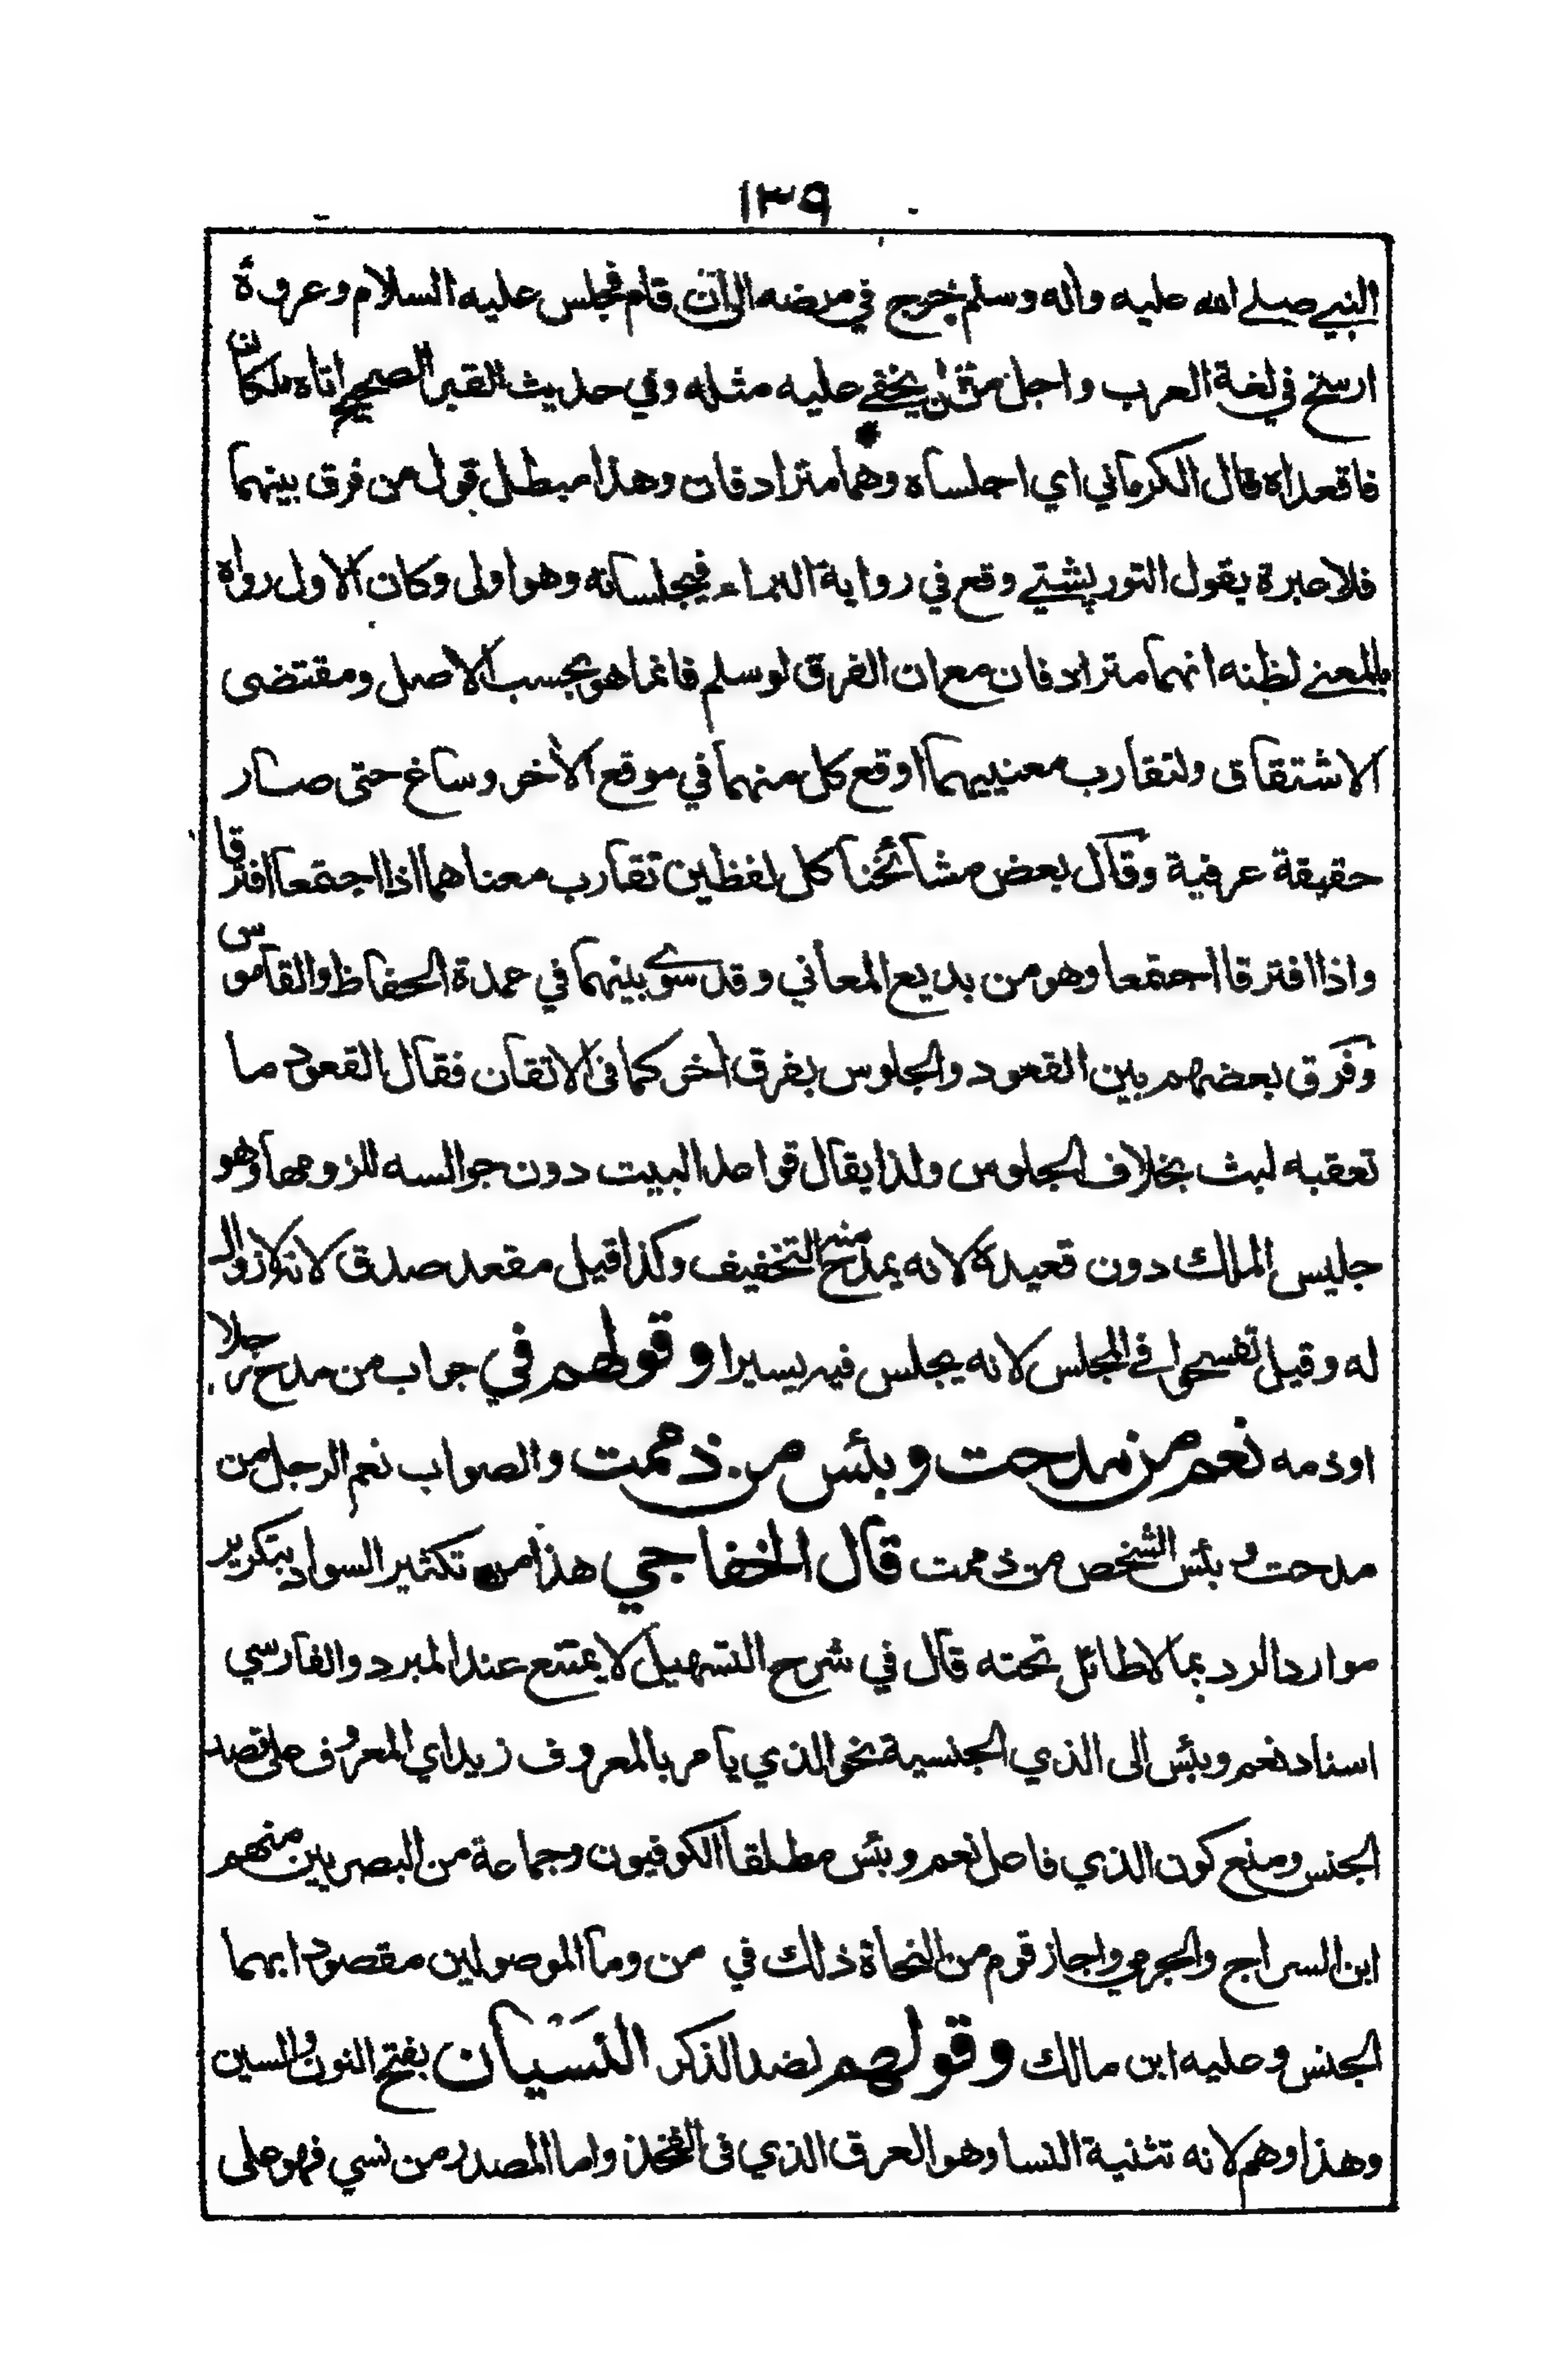 ١٣٩
النبي صلى الله عليه واله وسلم خرج في مرضه الى ان قام فجلس عليه السلام وعروة
ارسخ في لغة العرب واجل من ان يخفى عليه مثله وفي حديث القبر الصحيح اتاه ملكان
فاقعداه قال الكرماني اي اجلساه وهما مترادفان وهذا مبطل قول من فرق بينهما
فلا عبرة بقول التورپشتي وقع في رواية البراء فيجلسانه وهو اولى وكان الاول رواه
بالمعنى لظنه انهما مترادفان مع ان الفرق لو سلم فانما هو بحسب الاصل ومقتضى
الاشتقاق ولتقارب معنييهما اوقع كل منهما في موقع الآخر وساغ حتى صار
حقيقة عرفية وقال بعض مشائخنا كل لفظين تقارب معناهما اذا اجتمعا افترقا
واذا افترقا اجتمعا وهو من بديع المعاني وقد سوى بينهما في عمدة الحفاظ والقاموس
وفرق بعضهم بين القعود والجلوس بفرق آخر كما في الاتقان فقال القعود ما
تعقبه لبث بخلاف الجلوس ولذا يقال قواعد البيت دون جوالسه للزومها وهو
جليس الملك دون قعيده لانه يمدح منه التخفيف وكذا قيل مقعد صدق لانه لا زوال
له وقيل تفسحوا في المجلس لانه يجلس فيه يسيرا وقولهم في جواب من مدح رجلا
او ذمه نعم من مدحت وبئس من ذممت والصواب نعم الرجل من
مدحت وبئس الشخص من ذممت قال الخفاجي هذا من تكثير السواد بتكرير
موارد الرد بما لا طائل تحته قال في شرح التسهيل لا يمتنع عند المبرد والفارسي
اسناد نعم وبئس الى الذي الجنسية نحو الذي يامر بالمعروف زيد اي المعروف على قصد
الجنس ومنع كون الذي فاعل نعم وبئس مطلقا الكوفيون وجماعة من البصريين منهم
ابن السراج والجرمي واجاز قوم من النحاة ذلك في من وما الموصولين مقصودا بهما
الجنس وعليه ابن مالك وقولهم لضد الذكر النَسَيان بفتح النون والسين
وهذا وهم لانه تثنية النسا وهو العرق الذي في الفخذ واما المصدر من نسي فهو على